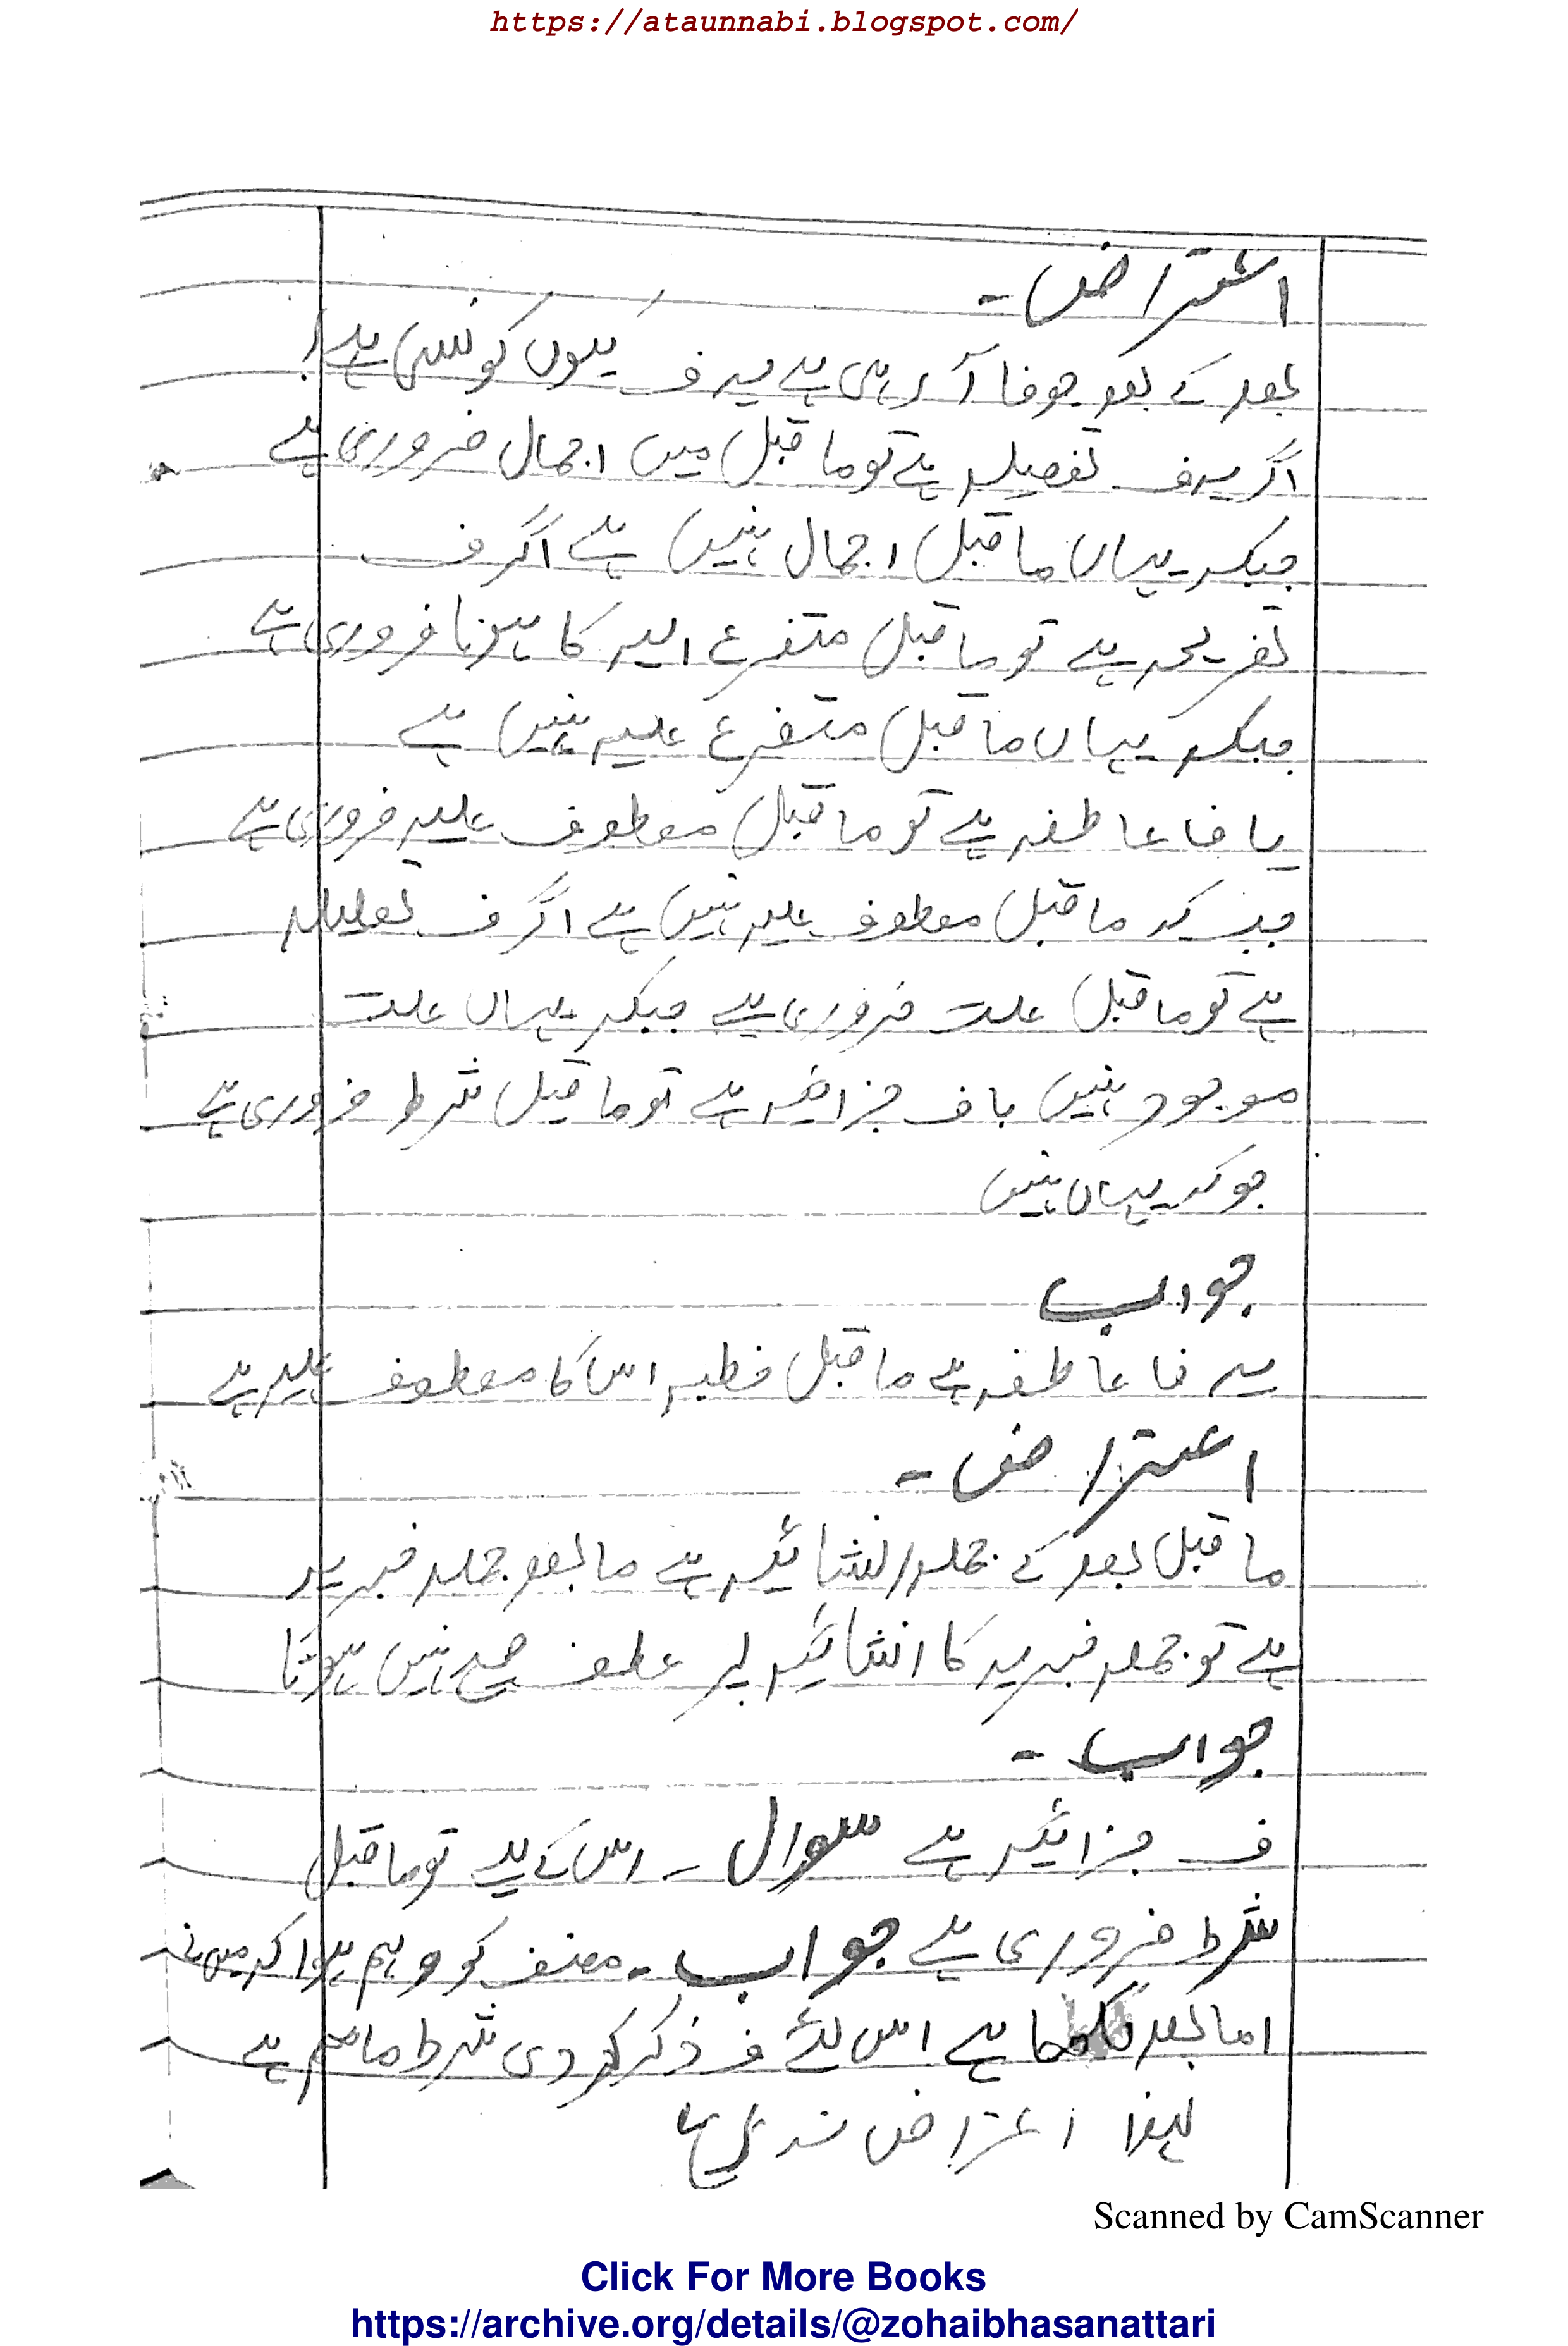 https://ataunnabi.blogspot.com/
اعتراض -
بعد کے بعد جو فا آ رہی ہے یہ ف کیوں کونسی ہے
اگر یہ ف تفصیلیہ ہے تو ما قبل میں اجمال ضروری ہے
جبکہ یہاں ما قبل اجمال نہیں ہے اگر ف
تفریعیہ ہے تو ما قبل متفرع الیہ کا ہونا ضروری ہے
جبکہ یہاں ما قبل متفرع علیہ نہیں ہے
یا فا عاطفہ ہے تو ما قبل معطوف علیہ ضروری ہے
جب کہ ما قبل معطوف علیہ نہیں ہے اگر ف تعلیلیہ
ہے تو ما قبل علت ضروری ہے جبکہ یہاں علت
موجود نہیں یا ف جزائیہ ہے تو ما قبل شرط ضروری ہے
جو کہ یہاں نہیں
جواب
یہ فا عاطفہ ہے ما قبل خطبہ اس کا معطوف علیہ ہے
اعتراض -
ما قبل بعد کے جملہ انشائیہ ہے ما بعد جملہ خبریہ
ہے تو جملہ خبریہ کا انشائیہ پر عطف صحیح نہیں ہوتا
جواب -
ف جزائیہ ہے سوال - اس کے لیے تو ما قبل
شرط ضروری ہے جواب - مصنف کو وہم ہوا کہ میں نے
اما بعد لکھا ہے اس لئے ف ذکر کر دی شرط ہے
لہذا اعتراض نہ رہا
Scanned by CamScanner
Click For More Books
https://archive.org/details/@zohaibhasanattari